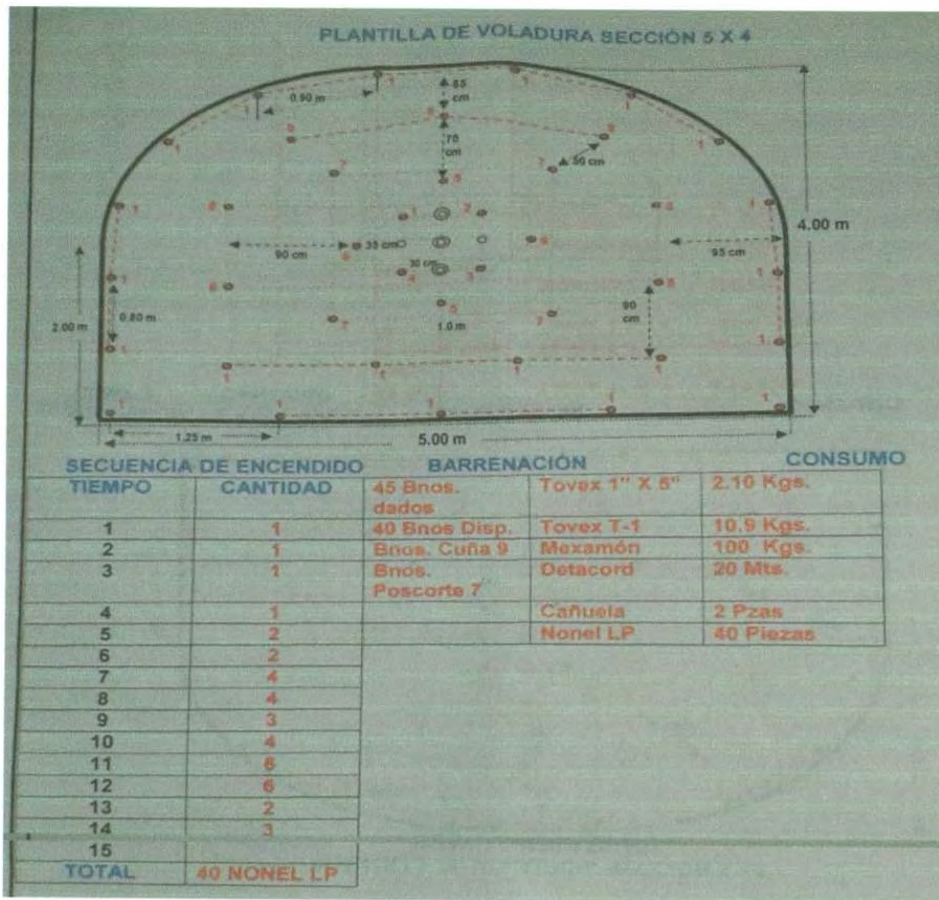 PLANTILLA DE VOLADURA SECCIÓN 5 X 4
1
1
65 cm
0.90 m
1
1
1
9
9
9
1
1
70 cm
7
7
50 cm
5
1
8
1
2
8
1
4.00 m
90 cm
6
35 cm
6
95 cm
30 cm
1
8
4
3
8
1
2.00 m
0.80 m
7
5
1.0 m
7
90 cm
1
1
1
1
1
1
1
1
1
1
1
1.25 m
5.00 m
SECUENCIA DE ENCENDIDO BARRENACIÓN CONSUMO
TIEMPO CANTIDAD 45 Bnos. dados Tovex 1" X 5" 2.10 Kgs.
1 1 40 Bnos Disp. Tovex T-1 10.9 Kgs.
2 1 Bnos. Cuña 9 Mexamón 100 Kgs.
3 1 Bnos. Poscorte 7 Detacord 20 Mts.
4 1 Cañuela 2 Pzas
5 2 Nonel LP 40 Piezas
6 2
7 4
8 4
9 3
10 4
11 6
12 6
13 2
14 3
15
TOTAL 40 NONEL LP